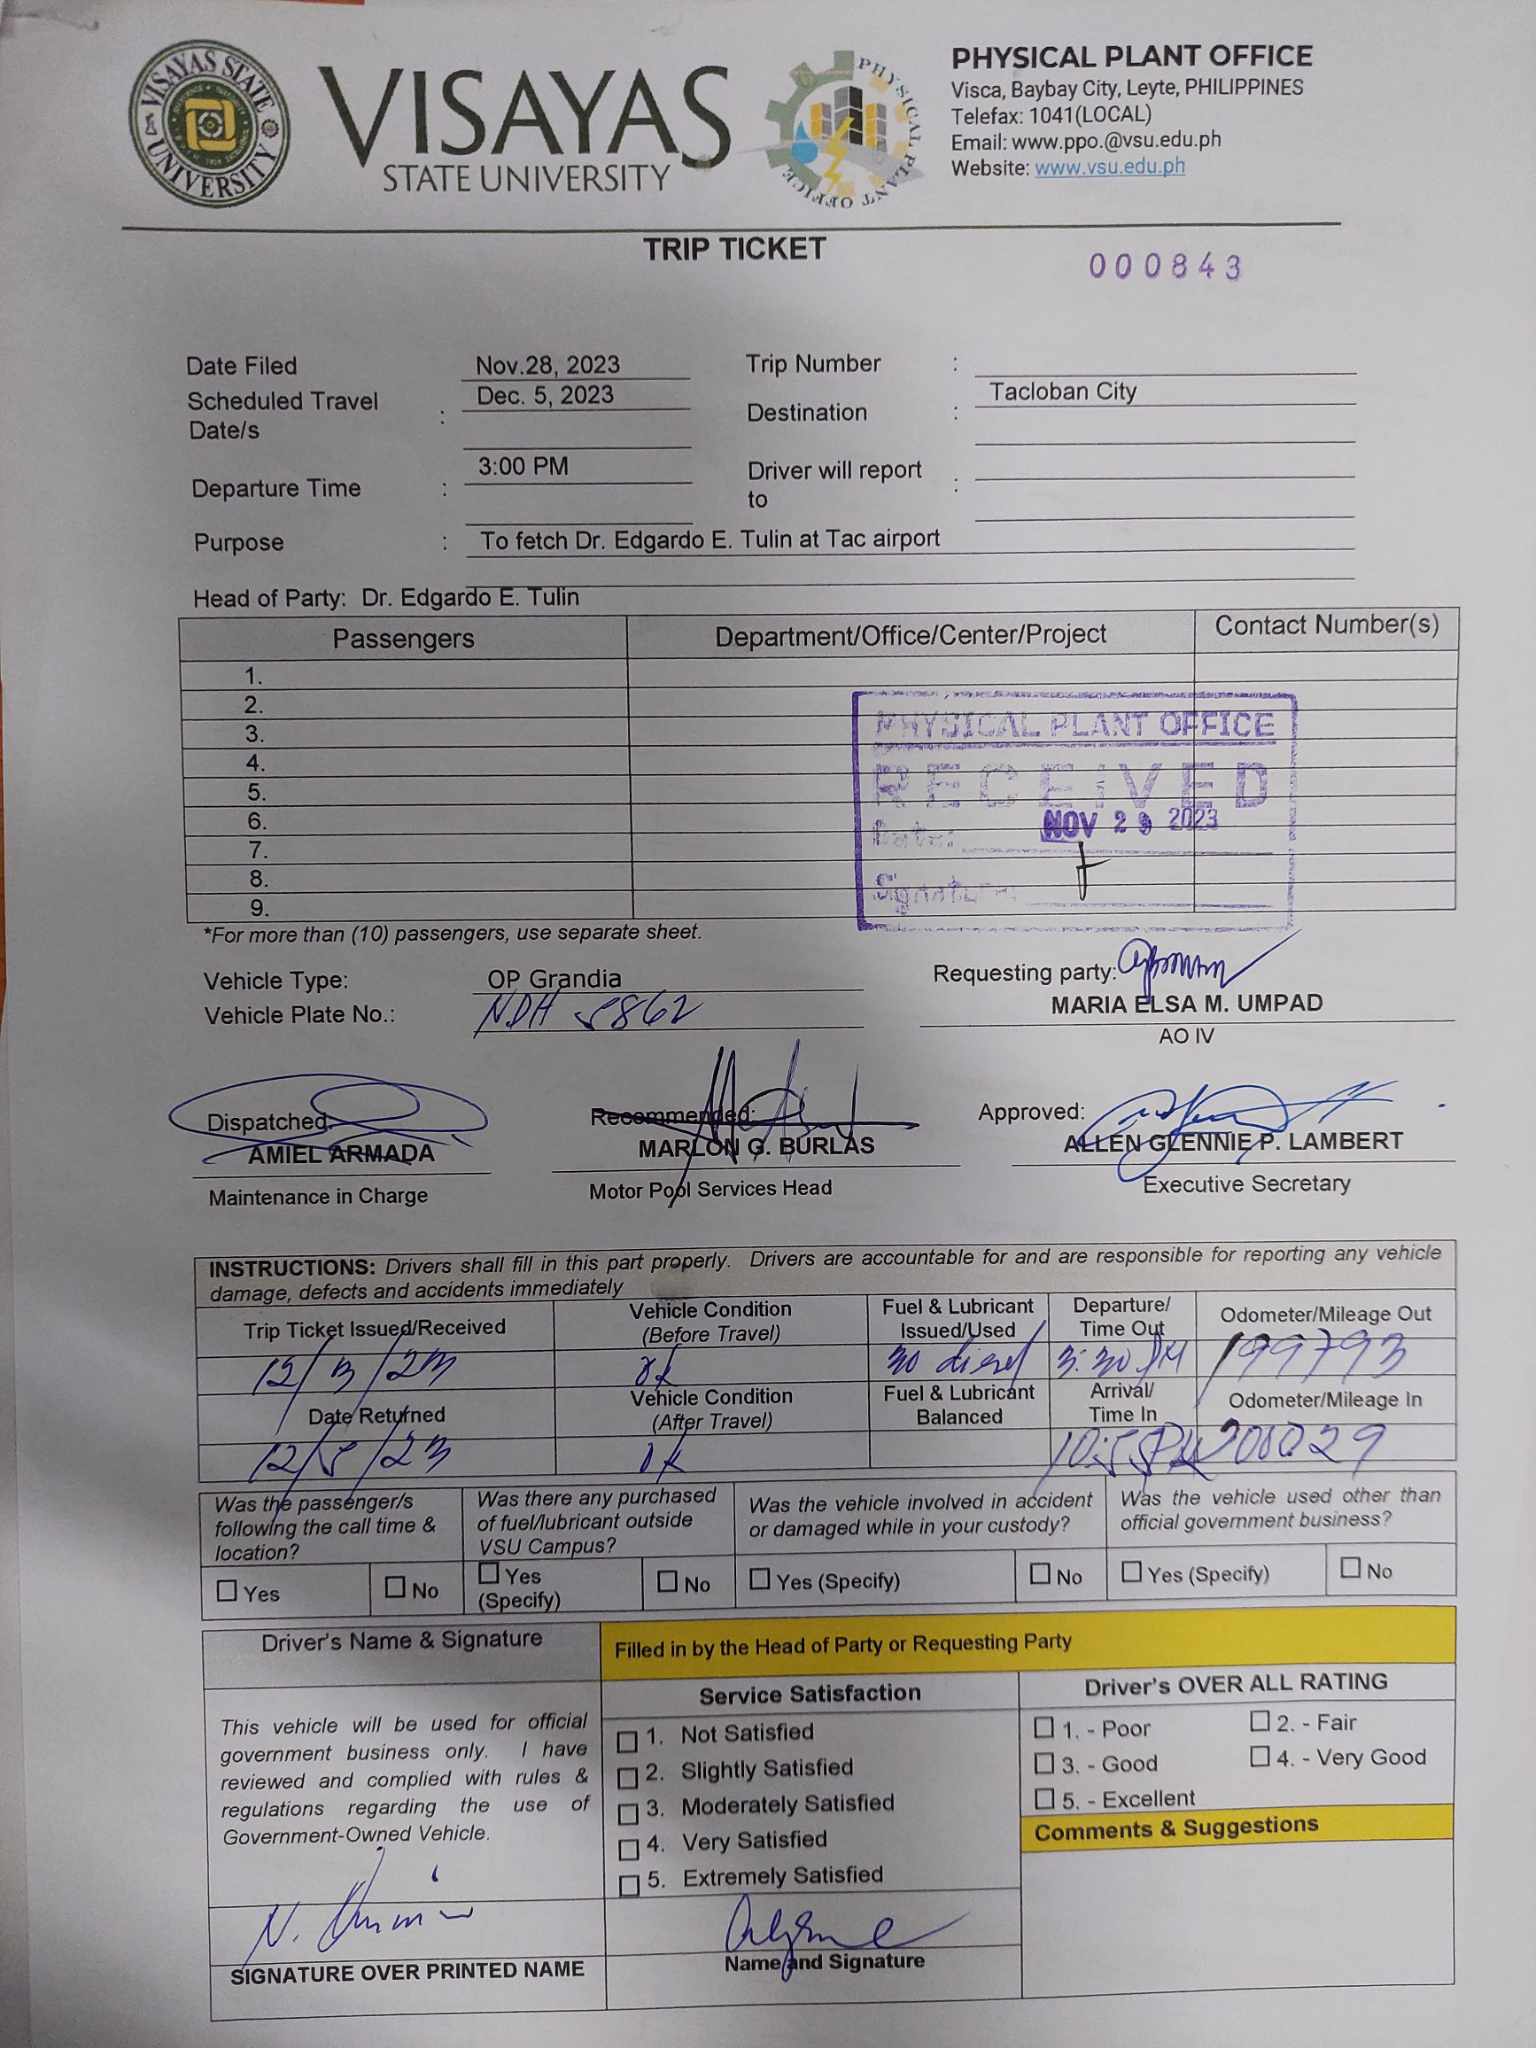 VISAYAS STATE UNIVERSITY
VISAYAS
STATE UNIVERSITY
PHYSICAL PLANT OFFICE
PHYSICAL PLANT OFFICE
Visca, Baybay City, Leyte, PHILIPPINES
Telefax: 1041(LOCAL)
Email: www.ppo.@vsu.edu.ph
Website: www.vsu.edu.ph
TRIP TICKET
000843
Date Filed Nov.28, 2023 Trip Number :
Scheduled Travel Date/s : Dec. 5, 2023 Destination : Tacloban City
Departure Time : 3:00 PM Driver will report to :
Purpose : To fetch Dr. Edgardo E. Tulin at Tac airport
Head of Party: Dr. Edgardo E. Tulin
Passengers Department/Office/Center/Project Contact Number(s)
1.
2.
3.
4.
5.
6.
7.
8.
9.
PHYSICAL PLANT OFFICE
RECEIVED
Date: NOV 29 2023
Signature:
*For more than (10) passengers, use separate sheet.
Vehicle Type: OP Grandia
Vehicle Plate No.: NDH 5862
Requesting party:
MARIA ELSA M. UMPAD
AO IV
Dispatched: Recommended: Approved:
AMIEL ARMADA MARLON G. BURLAS ALLEN GLENNIE P. LAMBERT
Maintenance in Charge Motor Pool Services Head Executive Secretary
INSTRUCTIONS: Drivers shall fill in this part properly. Drivers are accountable for and are responsible for reporting any vehicle
damage, defects and accidents immediately
Trip Ticket Issued/Received Vehicle Condition (Before Travel) Fuel & Lubricant Issued/Used Departure/ Time Out Odometer/Mileage Out
ok 30 diesel 3:30 PM 199793
Date Returned Vehicle Condition (After Travel) Fuel & Lubricant Balanced Arrival/ Time In Odometer/Mileage In
12/5/23 ok 10:55PM 200029
Was the passenger/s following the call time & location?
Yes No
Was there any purchased of fuel/lubricant outside VSU Campus?
Yes (Specify) No
Was the vehicle involved in accident or damaged while in your custody?
Yes (Specify) No
Was the vehicle used other than official government business?
Yes (Specify) No
Driver's Name & Signature
This vehicle will be used for official
government business only. I have
reviewed and complied with rules &
regulations regarding the use of
Government-Owned Vehicle.
SIGNATURE OVER PRINTED NAME
Filled in by the Head of Party or Requesting Party
Service Satisfaction
1. Not Satisfied
2. Slightly Satisfied
3. Moderately Satisfied
4. Very Satisfied
5. Extremely Satisfied
Name and Signature
Driver's OVER ALL RATING
1. - Poor 2. - Fair
3. - Good 4. - Very Good
5. - Excellent
Comments & Suggestions